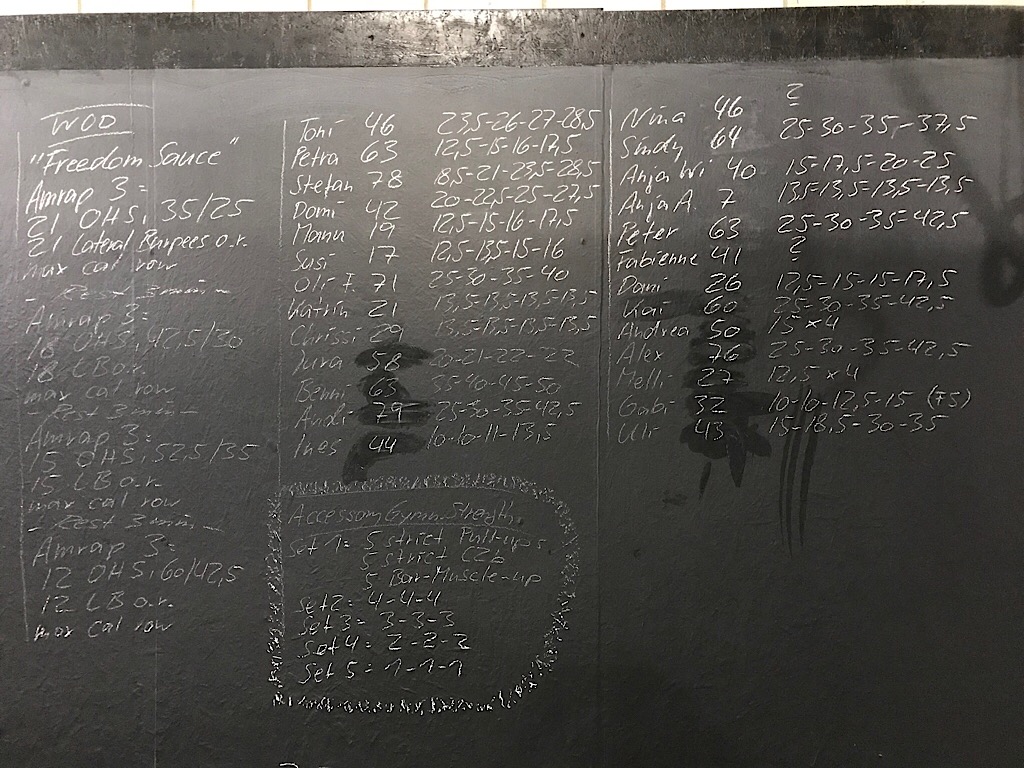 WOD
"Freedom Sauce"
Amrap 3:
21 OHS, 35/25
21 Lateral Burpees o.r.
max cal row
- Rest 3min -
Amrap 3:
18 OHS, 42,5/30
18 LB o.r.
max cal row
- Rest 3min -
Amrap 3:
15 OHS, 52,5/35
15 LB o.r.
max cal row
- Rest 3min -
Amrap 3:
12 OHS, 60/42,5
12 LB o.r.
max cal row
Toni 46 23,5-26-27-28,5
Petra 63 12,5-15-16-17,5
Stefan 78 18,5-21-23,5-28,5
Domi 42 20-22,5-25-27,5
Manu 19 12,5-15-16-17,5
Susi 17 12,5-13,5-15-16
Oli F. 71 25-30-35-40
Katrin 21 13,5-13,5-13,5-13,5
Chrissi 29 13,5-13,5-13,5-13,5
Jura 58 20-21-22-22
Benni 63 35-40-45-50
Andi 79 25-30-35-42,5
Ines 44 10-10-11-13,5
Accessory Gymn. Strength
Set 1: 5 strict Pull-ups
5 strict C2b
5 Bar-Muscle-up
Set 2: 4-4-4
Set 3: 3-3-3
Set 4: 2-2-2
Set 5: 1-1-1
Nina 46 ?
Sindy 64 25-30-35-37,5
Anja Wi 40 15-17,5-20-25
Anja A. 7 13,5-13,5-13,5-13,5
Peter 63 25-30-35-42,5
Fabienne 41 ?
Dani 26 12,5-15-15-17,5
Kai 60 25-30-35-42,5
Andrea 50 15x4
Alex 76 25-30-35-42,5
Melli 27 12,5x4
Gabi 32 10-10-12,5-15 (F5)
Uli 43 15-16,5-30-35